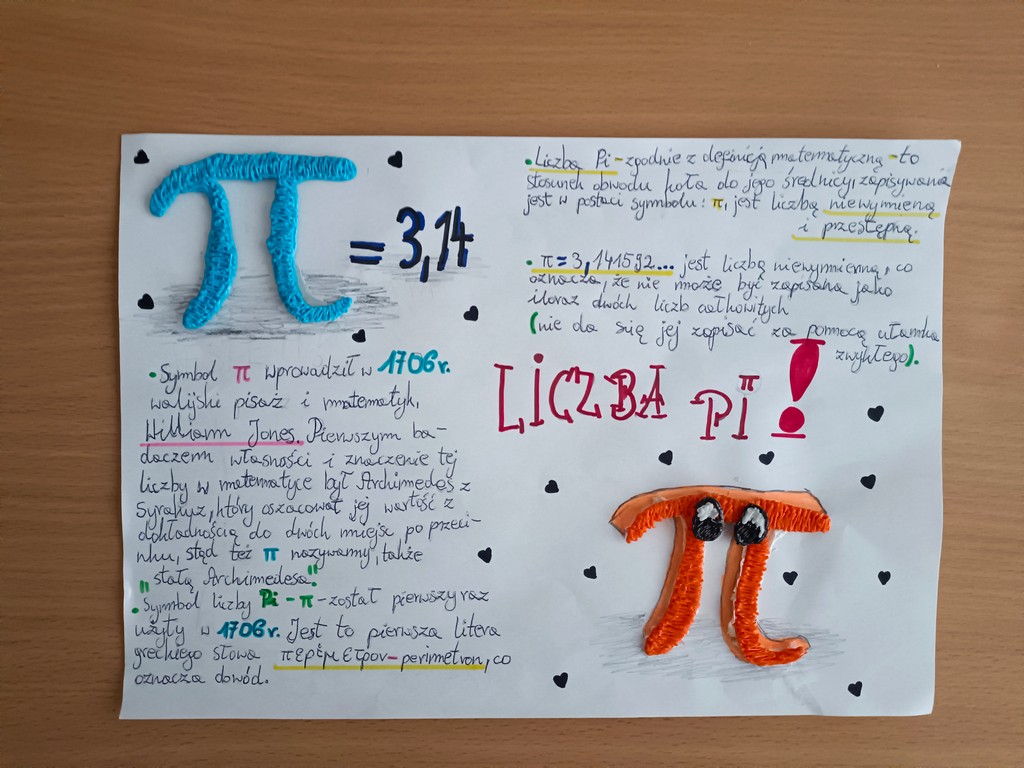 π = 3,14
• Liczba Pi - zgodnie z definicją matematyczną - to
stosunek obwodu koła do jego średnicy, zapisywana
jest w postaci symbolu: π, jest liczbą niewymierną
i przestępną.
• π = 3,141592... jest liczbą niewymierną, co
oznacza, że nie może być zapisana jako
iloraz dwóch liczb całkowitych
(nie da się jej zapisać za pomocą ułamka
zwykłego).
LICZBA Pi π !
• Symbol π wprowadził w 1706 r.
walijski pisarz i matematyk,
William Jones. Pierwszym ba-
daczem własności i znaczenie tej
liczby w matematyce był Archimedes z
Syrakuz, który oszacował jej wartość z
dokładnością do dwóch miejsc po przeci-
nku, stąd też π nazywamy, także
"stałą Archimedesa."
• Symbol liczby Pi - π - został pierwszy raz
użyty w 1706r. Jest to pierwsza litera
greckiego słowa περίμετρον - perimetron, co
oznacza dowód.
π